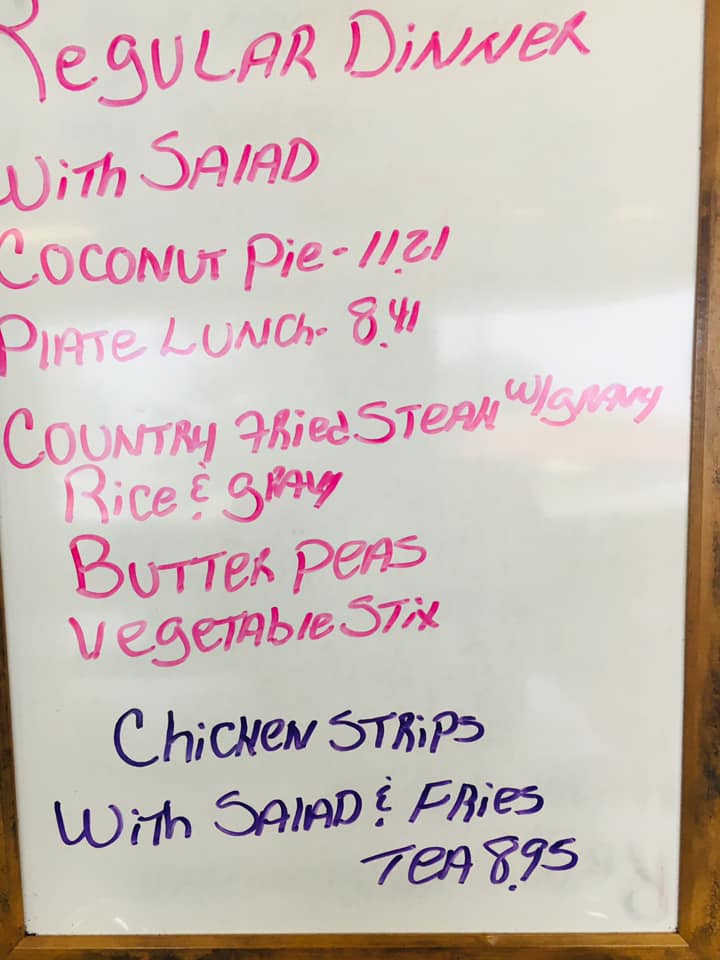 Regular Dinner
With Salad
Coconut Pie - 11.21
Plate Lunch - 8.41
Country Fried Steak w/gravy
Rice & gravy
Butter Peas
Vegetable Stix
Chicken Strips
With Salad & Fries
Tea 8.95